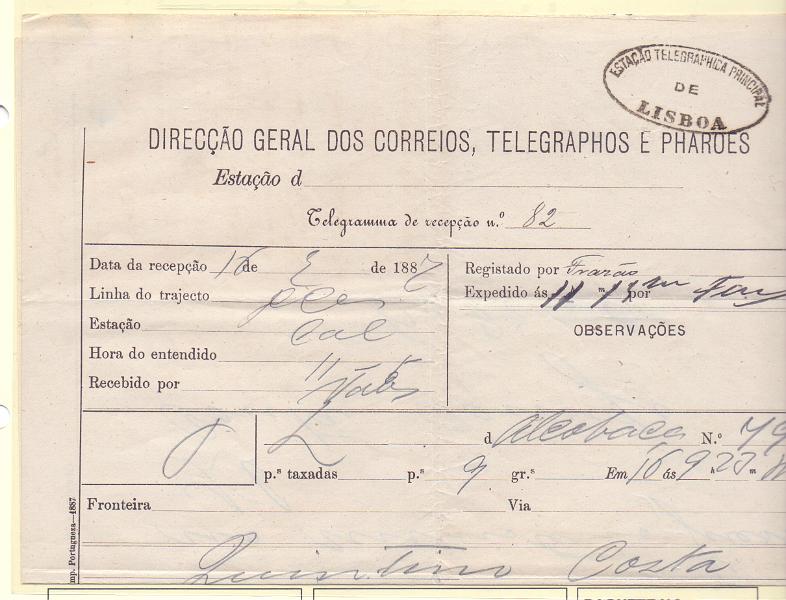 ESTAÇÃO TELEGRAPHICA PRINCIPAL
DE
LISBOA
DIRECÇÃO GERAL DOS CORREIOS, TELEGRAPHOS E PHAROES
Estação d
Telegramma de recepção n.º 82
Data da recepção 16 de de 1887
Registado por Frazão
Linha do trajecto
Expedido ás 11 m por
Estação Cal
OBSERVAÇÕES
Hora do entendido 11
Recebido por
d Alcobaça N.º 79
p.ˢ taxadas p.ˢ 9 gr.ˢ Em 16 ás 9 h 23 m M
Fronteira Via
Quintino Costa
mp. Portugueza—1887